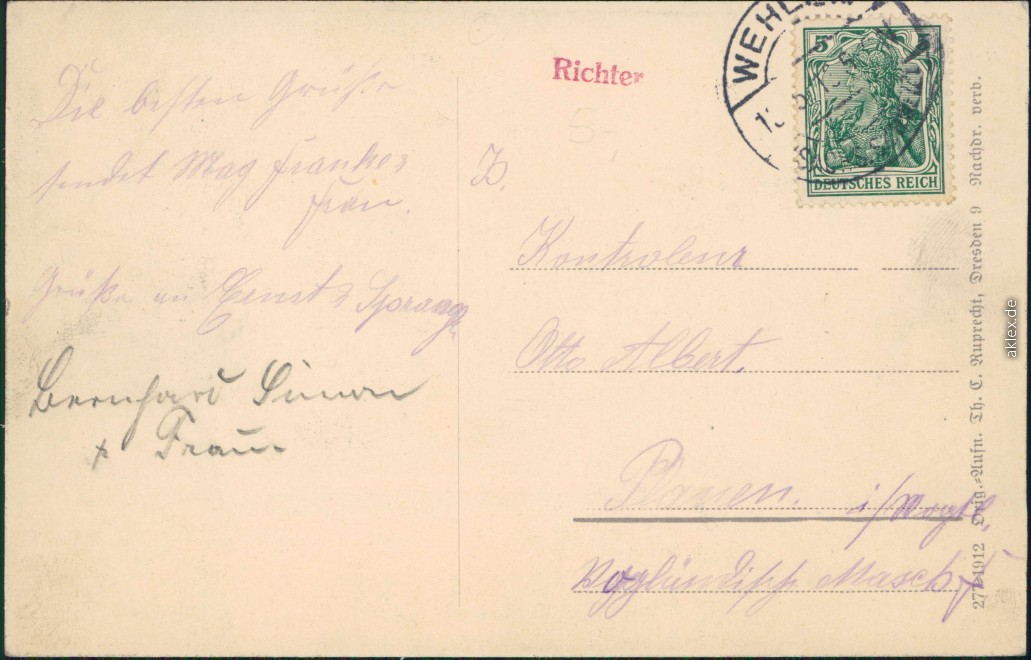 Die besten Grüße
sendet Mag Frankes
Frau.
Grüße an Ernst & Sprang
Bernhard Simon
+ Frau
Richter
WEHLEN
5 5
DEUTSCHES REICH
Kontroleur
Otto Albert.
Plauen. i/Vogtl.
Vogtländisch Masch.f
277-1912 Orig.=Aufn. Th. C. Ruprecht, Dresden 9 Nachdr. verb.
aklex.de